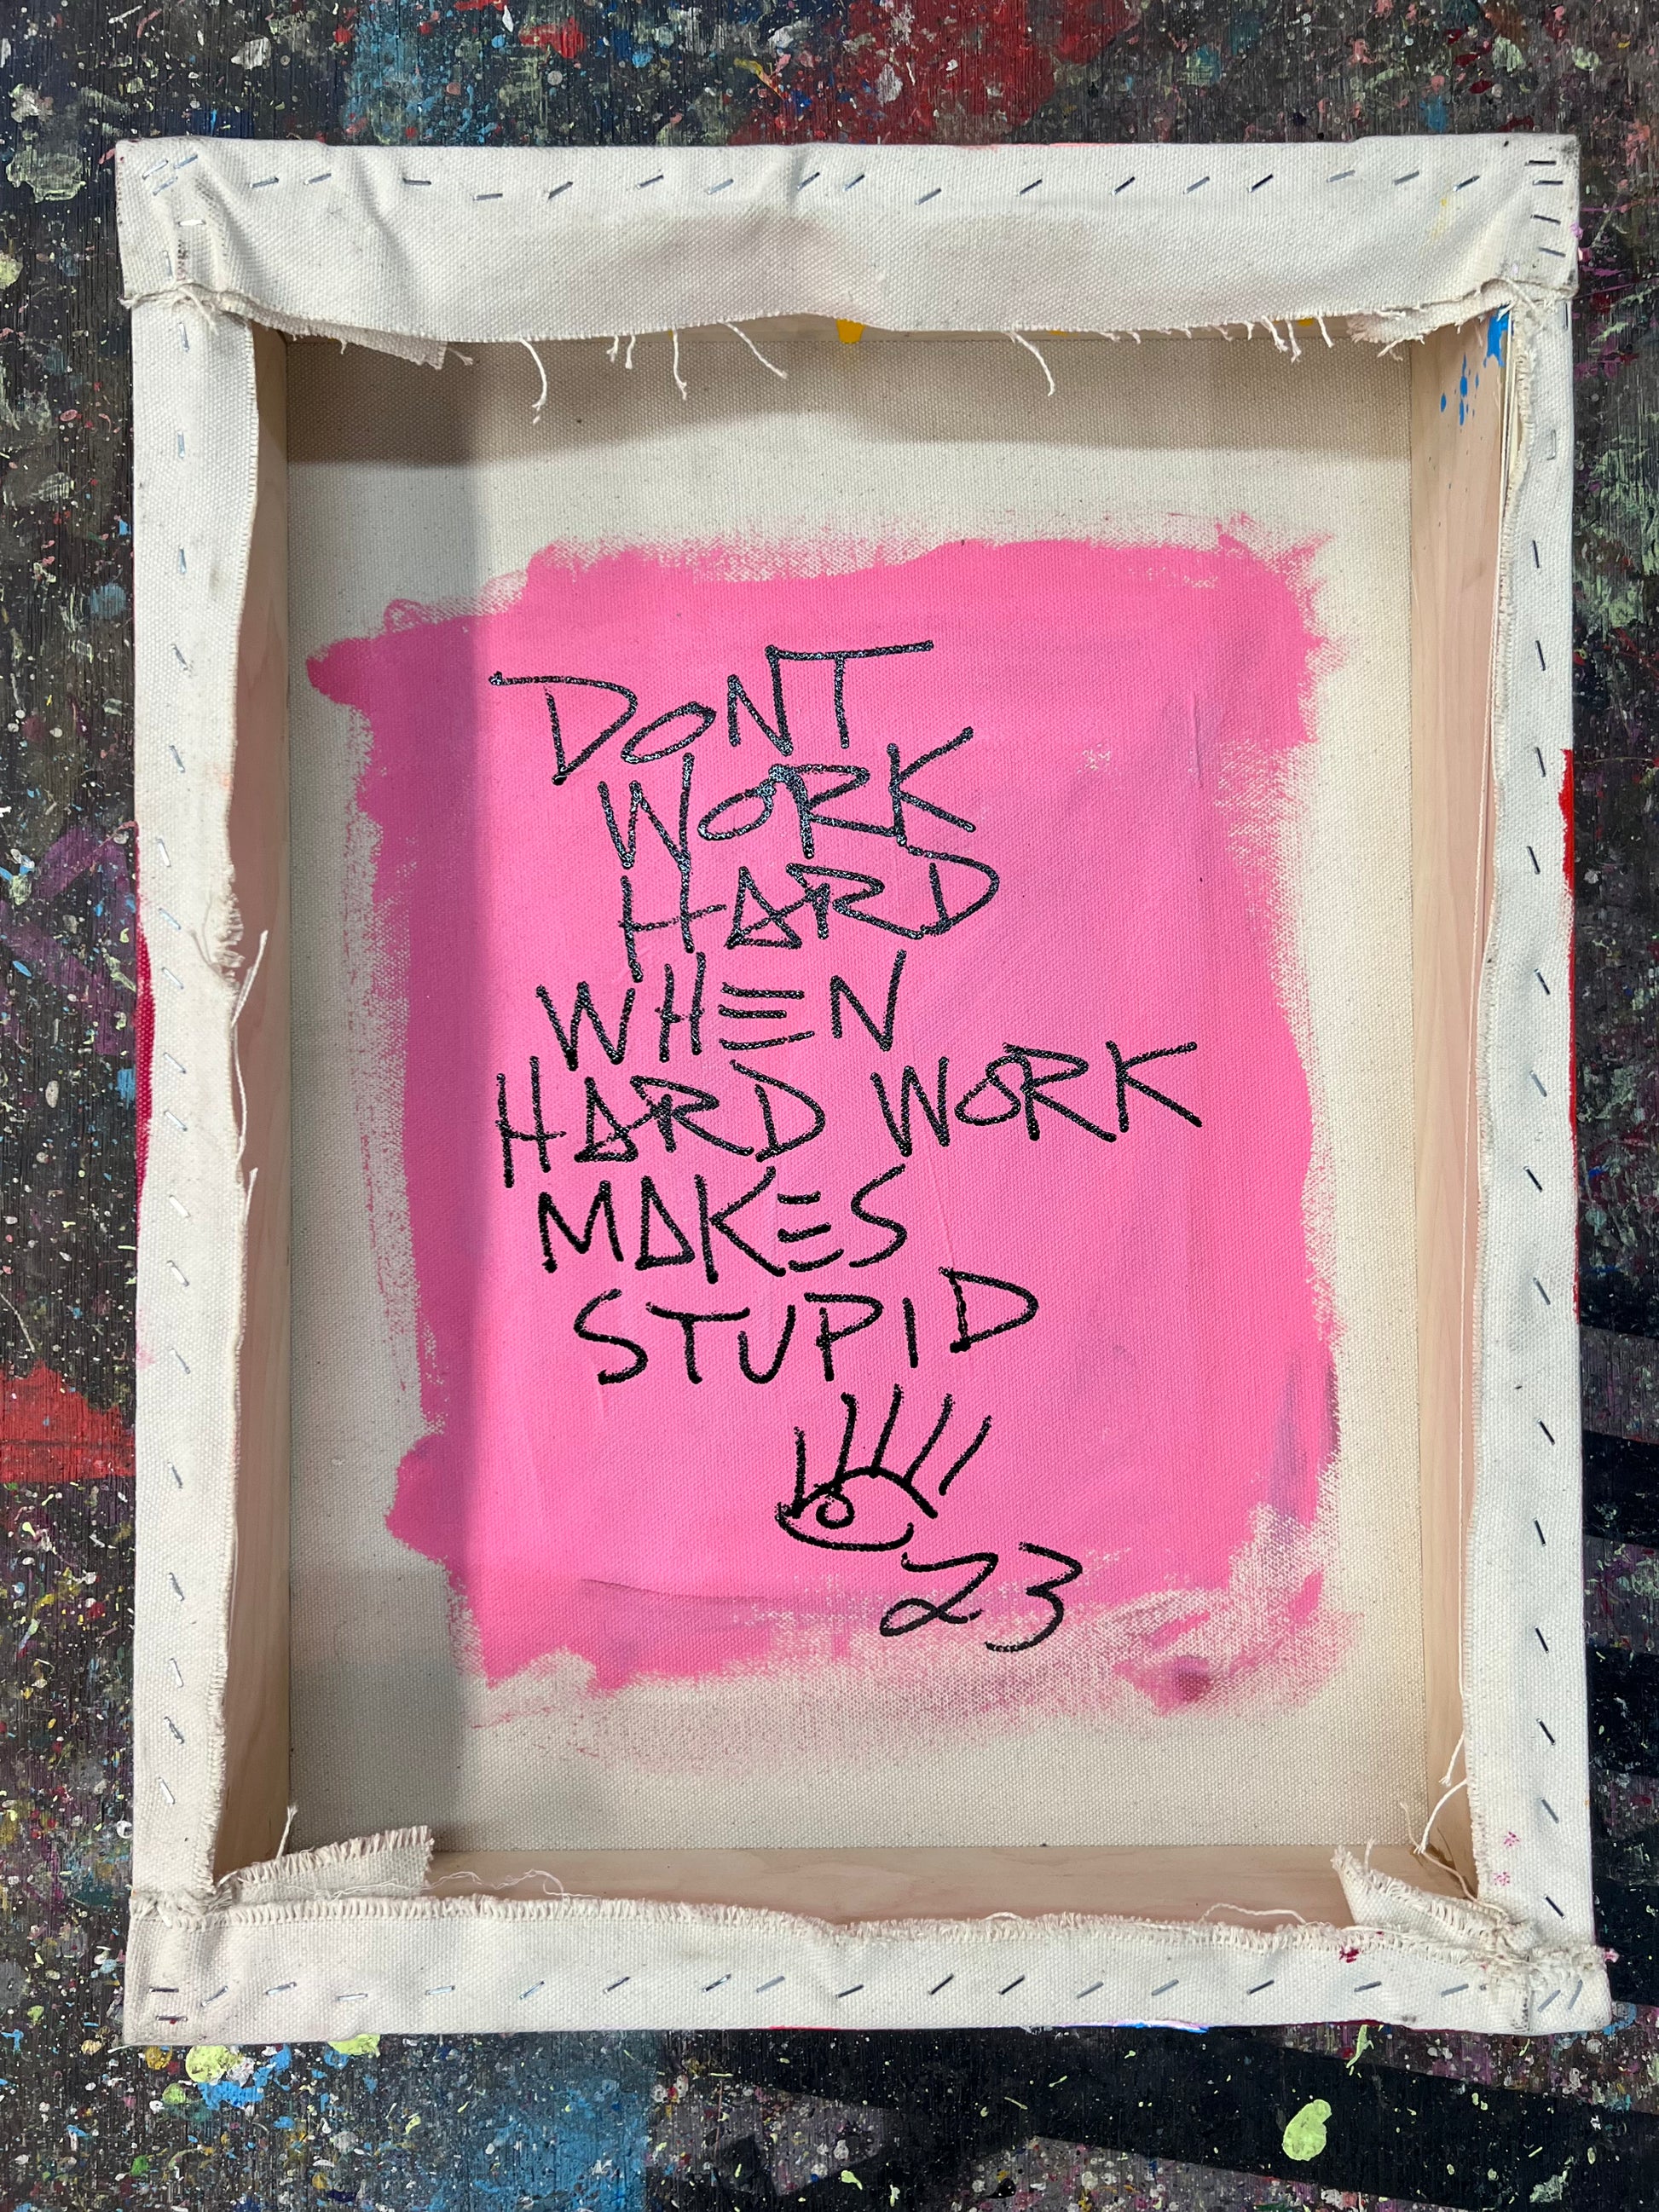 DONT
WORK
HARD
WHEN
HARD WORK
MAKES
STUPID
23